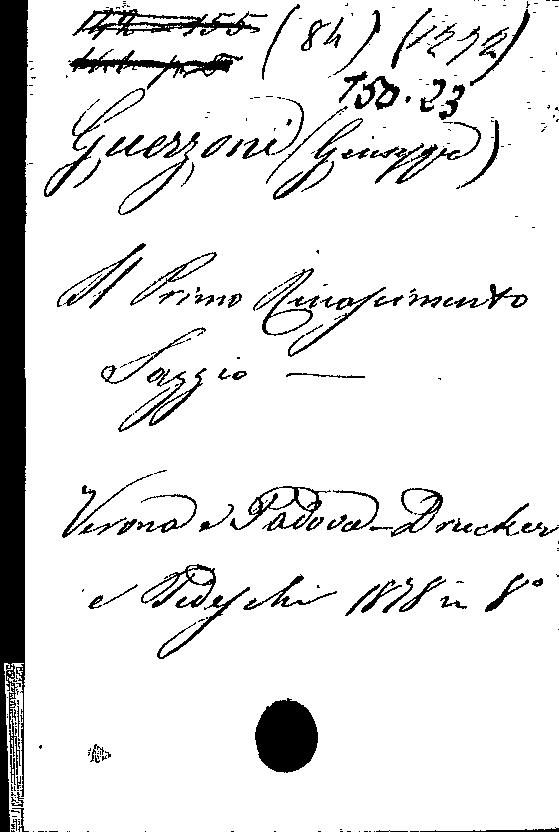 (84) (1272)
150.23
Guerzoni (Giuseppe)
Il Primo Rinascimento
Saggio —
Verona e Padova - Drucker
e Tedeschi 1878 in 8°